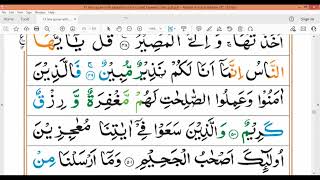 اَخَذْتُهَا ۚ وَاِلَيَّ الْمَصِيْرُ ﴿۴۸﴾ قُلْ يٰۤاَيُّهَا
النَّاسُ اِنَّمَاۤ اَنَا لَكُمْ نَذِيْرٌ مُّبِيْنٌ ﴿۴۹﴾ فَالَّذِيْنَ
اٰمَنُوْا وَعَمِلُوا الصّٰلِحٰتِ لَهُمْ مَّغْفِرَةٌ وَّرِزْقٌ
كَرِيْمٌ ﴿۵۰﴾ وَالَّذِيْنَ سَعَوْا فِيْۤ اٰيٰتِنَا مُعٰجِزِيْنَ
اُولٰٓئِكَ اَصْحٰبُ الْجَحِيْمِ ﴿۵۱﴾ وَمَاۤ اَرْسَلْنَا مِنْ